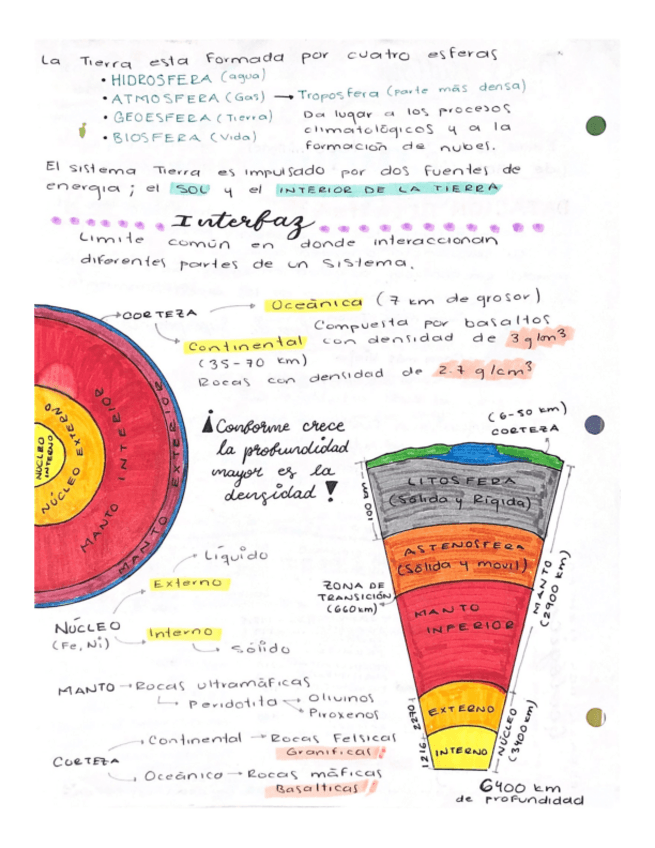 La Tierra esta formada por cuatro esferas
• HIDROSFERA (agua)
• ATMOSFERA (Gas) → Troposfera (parte más densa)
• GEOESFERA (Tierra)
• BIOSFERA (Vida)
Da lugar a los procesos
climatológicos y a la
formación de nubes.
El sistema Tierra es impulsado por dos fuentes de
energia; el SOL y el INTERIOR DE LA TIERRA
Interfaz
Limite común en donde interaccionan
diferentes partes de un sistema.
CORTEZA
Oceánica (7 km de grosor)
Compuesta por basaltos
con densidad de 3 g/cm³
Continental
(35-70 km)
Rocas con densidad de 2.7 g/cm³
NÚCLEO INTERNO
NÚCLEO EXTERNO
MANTO INTERIOR
MANTO EXTERIOR
¡Conforme crece
la profundidad
mayor es la
densidad!
(6-50 km)
CORTEZA
LITOSFERA
(Sólida y Rígida)
100 km
ASTENOSFERA
(Sólida y movil)
ZONA DE
TRANSICIÓN
(660km)
MANTO
INFERIOR
MANTO
(2900 km)
EXTERNO
2270
INTERNO
1216
NÚCLEO
(3400 km)
6400 km
de profundidad
NÚCLEO
(Fe, Ni)
Externo
Líquido
Interno
Sólido
MANTO → Rocas ultramáficas
Peridotita
Olivinos
Piroxenos
CORTEZA
Continental → Rocas Felsicas
Graníticas!!
Oceánica → Rocas máficas
Basalticas!!